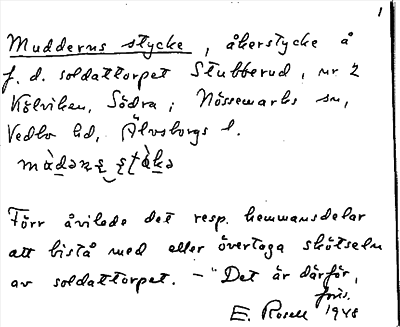 1
Mudderns stycke, åkerstycke å
f. d. soldattorpet Stubberud, nr 2
Kölviken, Södra; Nössemarks sn,
Vedbo hd, Älvsborgs l.
Förr åvilade det resp. hemmansdelar
att bistå med eller övertaga skötseln
av soldattorpet. — "Det är därför,
E. Rosell 1948